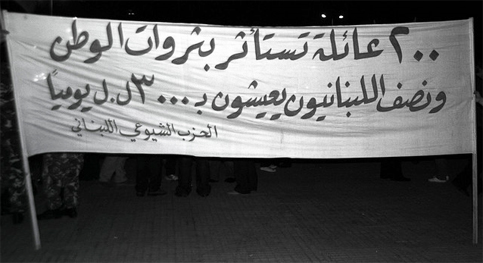 ٢٠٠ عائلة تستأثر بثروات الوطن
ونصف اللبنانيون يعيشون بـ ٣٠٠٠ ل.ل يومياً
الحزب الشيوعي اللبناني